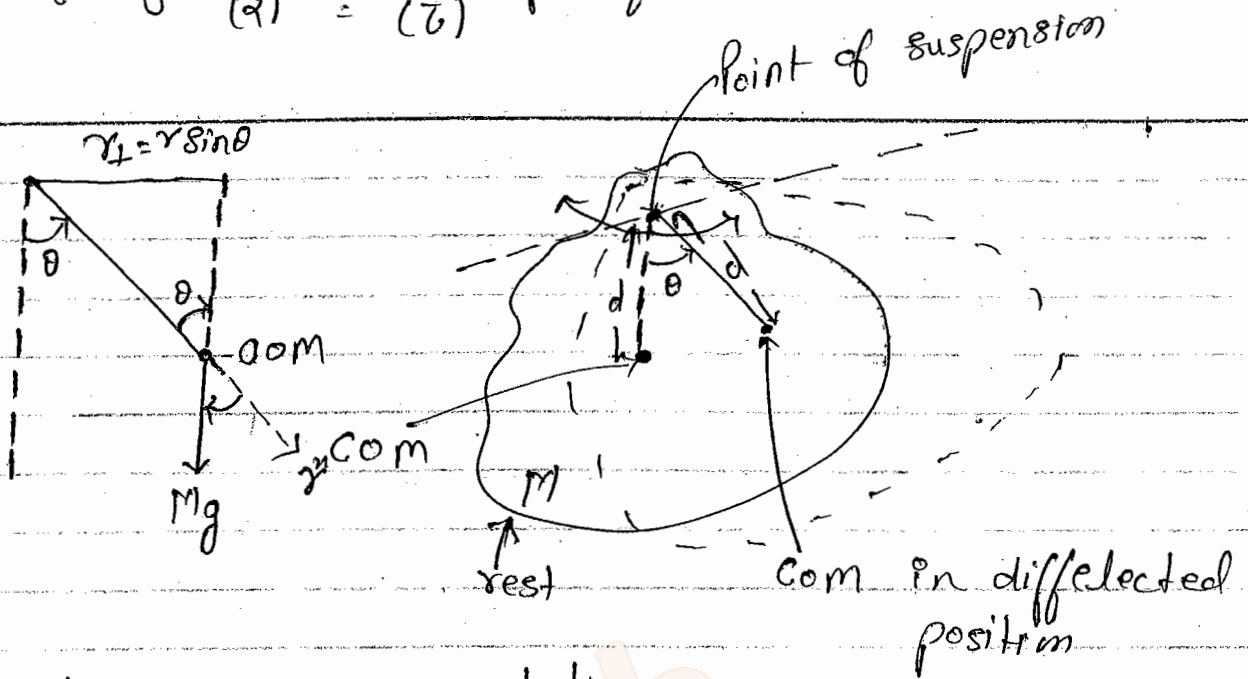 (2) = (τ)
Point of suspension
r⊥=rsinθ
θ
θ
d
θ
d
com
Mg
r
Com
M
rest
Com in diffelected
position